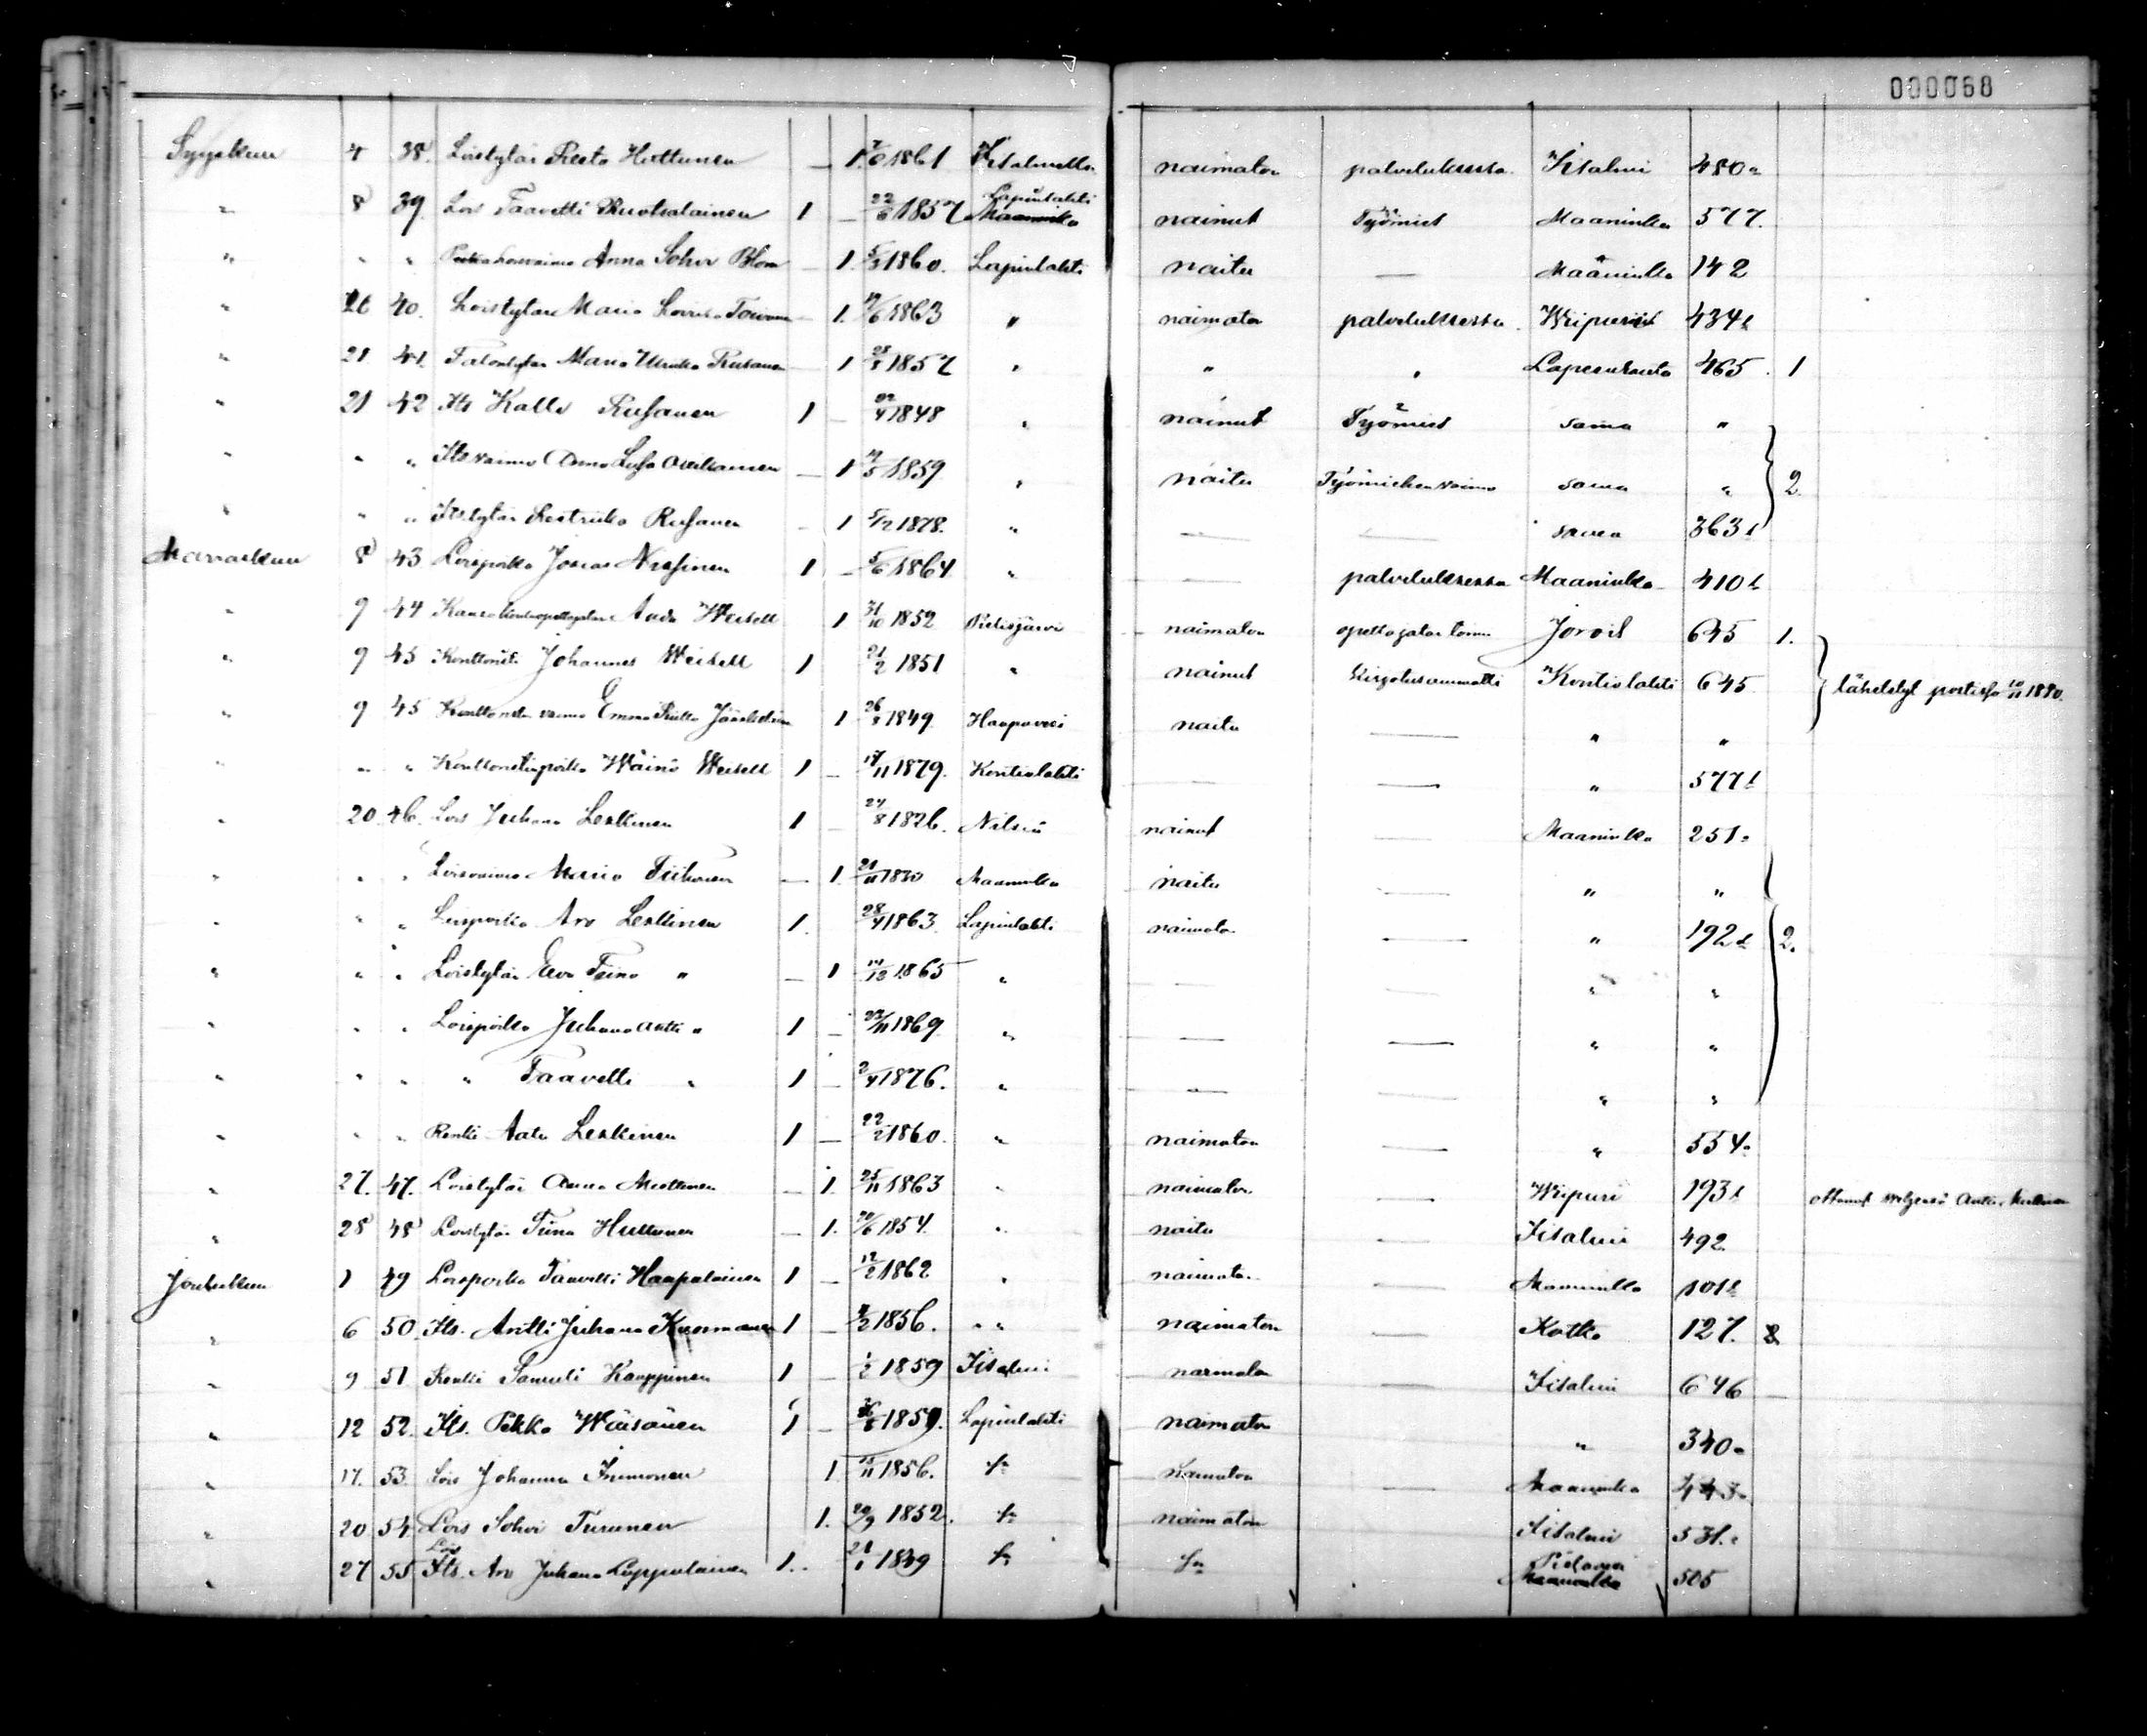 000068
Syyskuu 4 38. Loistytär Reeta Huttunen — 1. 7/8 1861 Iisalmelta naimaton palveluksessa. Iisalmi 480a
" 8 39. Lois Taavetti Ruotsalainen 1 — 22/6 1857 Lapinlahti Maaninka nainut Työmies Maaninka 577.
" " " Anna Sohvi Blom — 1. 5/3 1860. Lapinlahti naitu — Maaninka 142
" 26 40. Loistytär Maria Loviisa Toivanen — 1. 1863 " naimaton palveluksessa. Wiipuri 434b
" 21 41. Talontytär Maria Ulriika Rusanen — 1 28/8 1857 " " " Lapeenranta 465. 1
" 21 42 Its Kalle Rusanen 1 — 1848 " nainut Työmies sama "
" " " Its vaimo Anna Liisa — 1 1859 " naitu Työmiehen vaimo sama " 2.
" " " Its. tytär Rusanen — 1 5/12 1878. " — — sama 363b
Marraskuu 8 43 Loispoika Josias Nissinen 1 — 5/6 1864 " — palveluksessa Maaninka 410b
" 9 44 Kansakoulunopettajatar 1 31/10 1852 Pielisjärvi naimaton opettajatar toimi Jorois 645 1.
" 9 45 Konttoristi Johannes 1 21/2 1851 " nainut Kontiolahti 645 lähetetyt postissa 10/11 1880.
" 9 45 Konttoristin vaimo Emma 1 26/8 1849 Haapavesi naitu — " "
" " " Konttoristinpoika Wäinö 1 — 17/11 1879. Kontiolahti — — " 577b
" 20. 46. Lois Juhana Leskinen 1 — 27/8 1826. Nilsiä nainut — Maaninka 251a
" " " Loisvaimo Maria Tiihonen — 1. 21/11 1830 Maaninka naitu — " "
" " " Loispoika Aro Leskinen 1. 28/4 1863. Lapinlahti naimaton — " 192b 2.
" " " Loistytär Eeva Tiina " — 1 14/12 1865 " — — " "
" " " Loispoika Juhana Antti " 1 — 22/11 1869. " — — " "
" " " " Taavetti " 1 — 2/4 1876. " — — " "
" " " Renki Aatu Leskinen 1 — 22/2 1860. " naimaton — " 554a
" 27. 47. Loistytär Anna Miettinen — 1. 25/11 1863 " naimaton — Wiipuri 193b
" 28 48 Loistytär Tiina Huttunen — 1. 1854. " naitu — Iisalmi 492
Joulukuu 1 49 Loispoika Taavetti Haapalainen 1 — 12/2 1862 " naimaton — Maaninka 101b
" 6 50. Its. Antti Juhana Kuosmanen 1 — 1856. " " naimaton — Kotka 127. 2
" 9 51 Renki Samuli Kauppinen 1 — 1/2 1859 Iisalmi naimaton — Iisalmi 646 —
" 12 52. Its. Pekka Wäisänen 1 — 1859. Lapinlahti naimaton " 340a
" 17. 53. Lois Johanna Immonen 1. 1856. sa naimaton — Maaninka
" 20 54 Lois Sohvi Turunen 1. 20/9 1852. sa naimaton Iisalmi 531.
" 27 55 Lois Its. Aro Juhana Lappalainen 1. 21/1 1849 sa sa Maaninka 505